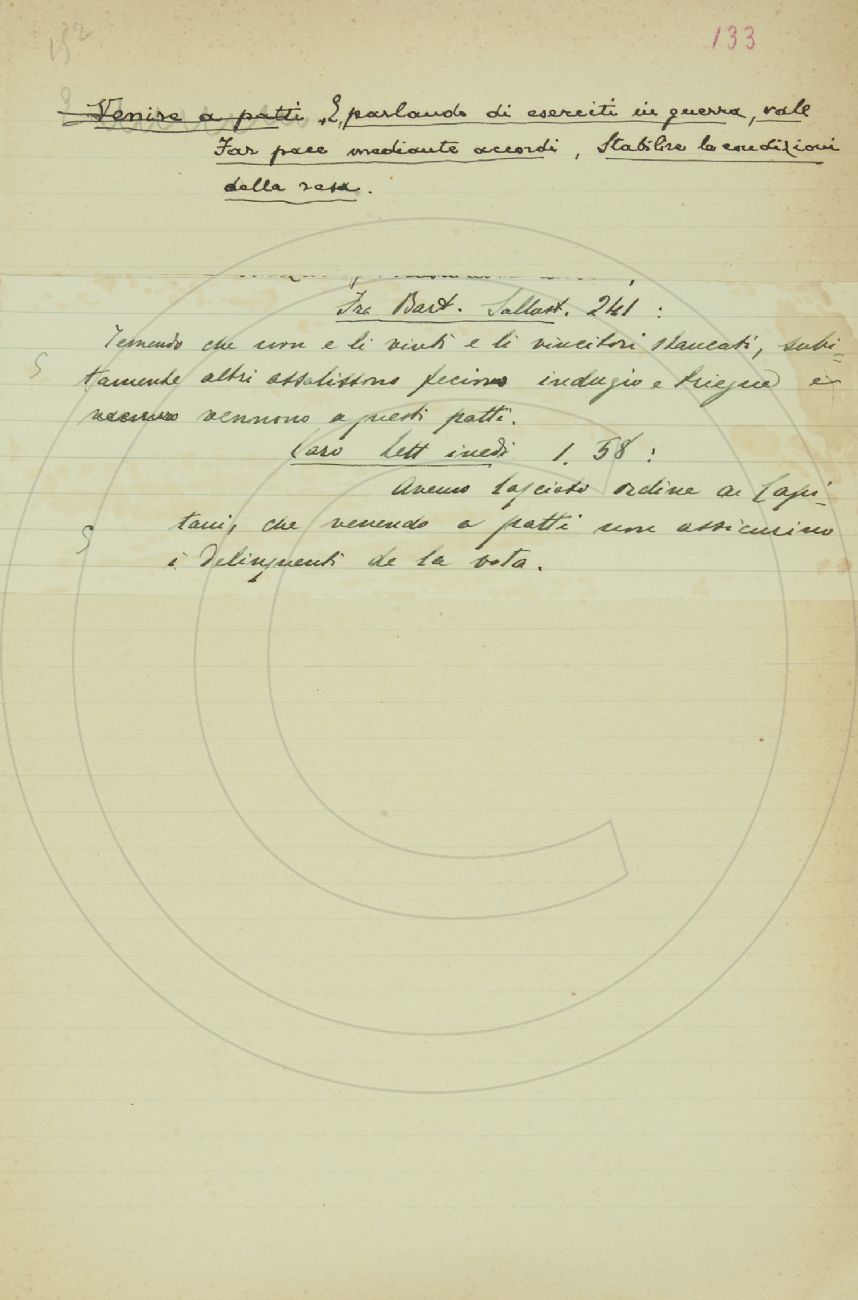 152
133
Venire a patti, E, parlando di eserciti in guerra, vale
Far pace mediante accordi, Stabilire le condizioni
della resa.
Fra Bart. Sallust. 241:
Temendo che non e li vinti e li vincitori stancati, subi=
tamente altri assalissono fecioro indugio e triegue e
vennono a questi patti.
Caro Lett inedi 1. 58:
Avemo lasciato ordine ai Capi-
tani, che venendo a patti non assicurino
i Delinquenti de la vita.